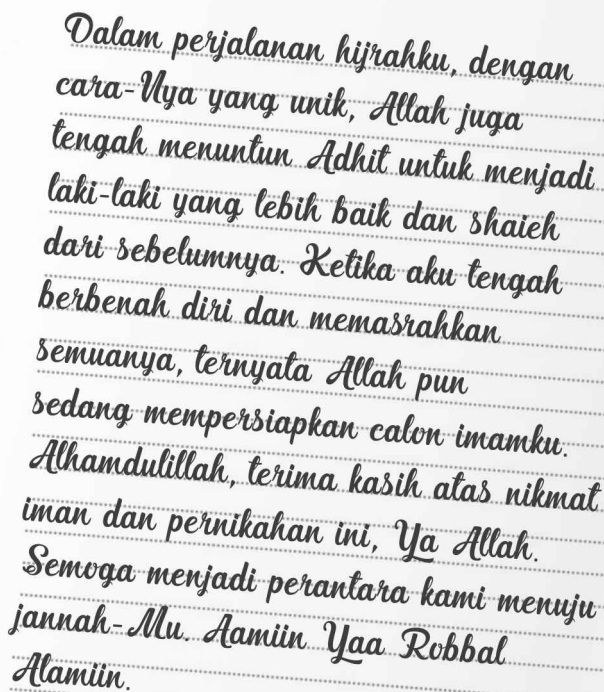 Dalam perjalanan hijrahku, dengan
cara-Nya yang unik, Allah juga
tengah menuntun Adhit untuk menjadi
laki-laki yang lebih baik dan shaleh
dari sebelumnya. Ketika aku tengah
berbenah diri dan memasrahkan
semuanya, ternyata Allah pun
sedang mempersiapkan calon imamku.
Alhamdulillah, terima kasih atas nikmat
iman dan pernikahan ini, Ya Allah.
Semoga menjadi perantara kami menuju
jannah-Mu. Aamiin Yaa Robbal
Alamiin.